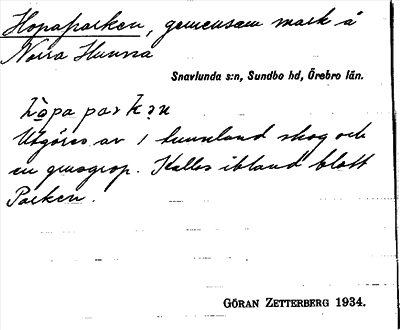 Hopaparken, gemensam mark å
Norra Hunna
Snavlunda s:n, Sundbo hd, Örebro län.
Utgöres av 1 tunnland skog och
en grusgrop. Kallas ibland blott
Parken.
GÖRAN ZETTERBERG 1934.